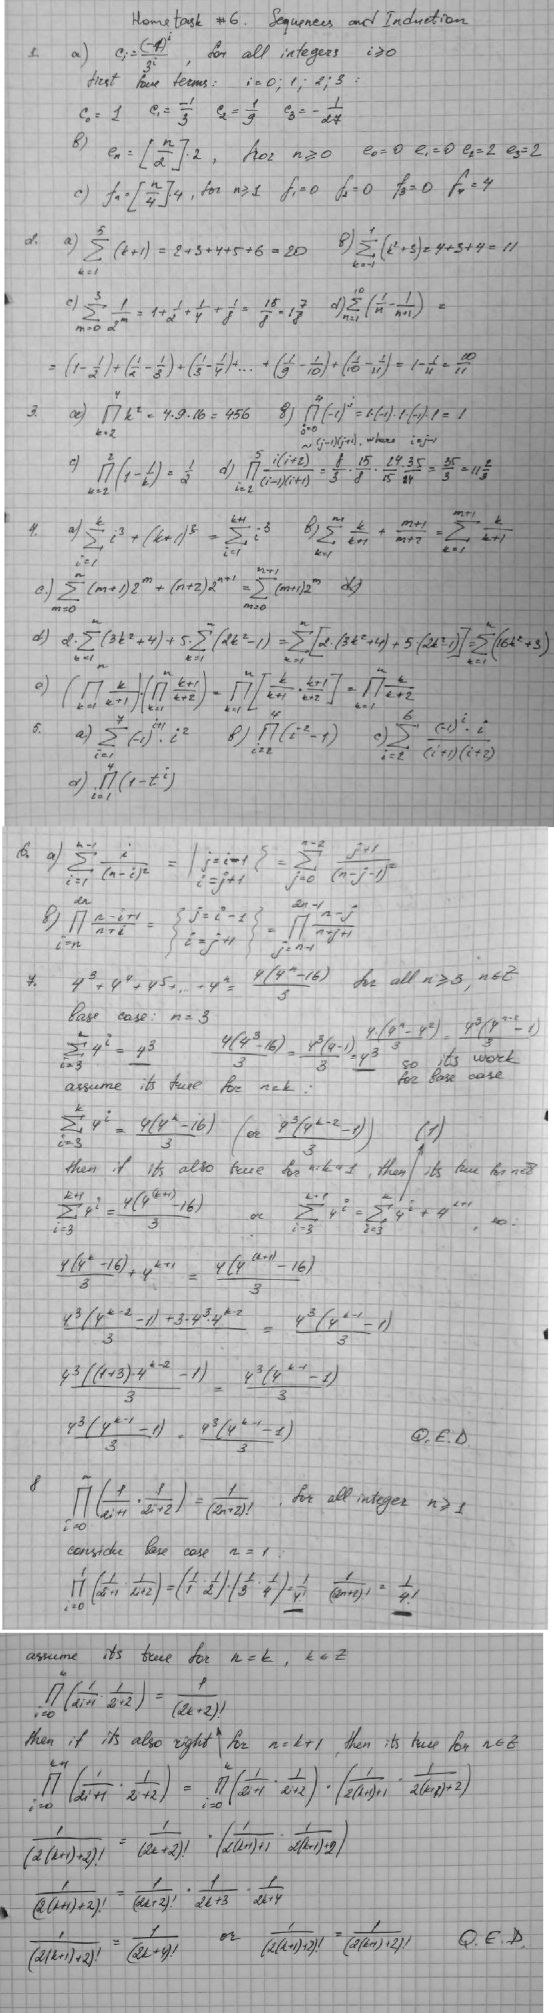 Hometask #6. Sequences and Induction
1. a) c_i = (-1)^i / 3^i , for all integers i ≥ 0
first four terms: i = 0; 1; 2; 3 :
c_0 = 1 c_1 = -1/3 c_2 = 1/9 c_3 = - 1/27
b) e_n = [n/2]·2 , for n ≥ 0 e_0=0 e_1=0 e_2=2 e_3=2
c) f_n = [n/4]·4 , for n ≥ 1 f_1=0 f_2=0 f_3=0 f_4=4
2. a) ∑_{k=1}^{5} (k+1) = 2+3+4+5+6 = 20 b) ∑_{k=-1}^{1} (k²+3) = 4+3+4 = 11
c) ∑_{m=0}^{3} 1/2^m = 1 + 1/2 + 1/4 + 1/8 = 15/8 = 1 7/8 d) ∑_{n=1}^{10} (1/n - 1/(n+1)) =
= (1 - 1/2) + (1/2 - 1/3) + (1/3 - 1/4) + ... + (1/9 - 1/10) + (1/10 - 1/11) = 1 - 1/11 = 10/11
3. a) ∏_{k=2}^{4} k² = 4·9·16 = 456 b) ∏_{j=0}^{4} (-1)^j = 1·(-1)·1·(-1)·1 = 1
~ (j-1)(j+1), where i=j-1
c) ∏_{k=2}^{2} (1 - 1/k) = 1/2 d) ∏_{i=2}^{5} i(i+2) / (i-1)(i+1) = 8/3 · 15/8 · 24/15 · 35/24 = 35/3 = 11 2/3
4. a) ∑_{i=1}^{k} i³ + (k+1)³ = ∑_{i=1}^{k+1} i³ b) ∑_{k=1}^{m} k/(k+1) + (m+1)/(m+2) = ∑_{k=1}^{m+1} k/(k+1)
c) ∑_{m=0}^{n} (m+1)2^m + (n+2)2^{n+1} = ∑_{m=0}^{n+1} (m+1)2^m
d) 2·∑_{k=1}^{n} (3k²+4) + 5·∑_{k=1}^{n} (2k²-1) = ∑_{k=1}^{n} [2·(3k²+4) + 5·(2k²-1)] = ∑_{k=1}^{n} (16k²+3)
e) (∏_{k=1}^{n} k/(k+1))·(∏_{k=1}^{n} (k+1)/(k+2)) = ∏_{k=1}^{n} [k/(k+1) · (k+1)/(k+2)] = ∏_{k=1}^{n} k/(k+2)
5. a) ∑_{i=1}^{7} (-1)^{i+1} · i² b) ∏_{i=2}^{4} (i²-1) c) ∑_{i=2}^{6} (-1)^i · i / (i+1)(i+2)
d) ∏_{i=1}^{4} (1 - t^i)
6. a) ∑_{i=1}^{n-1} i/(n-i)² = | j=i-1 i=j+1 } = ∑_{j=0}^{n-2} (j+1)/(n-j-1)²
b) ∏_{i=n}^{2n} (n-i+1)/(n+i) = { j=i-1 i=j+1 } = ∏_{j=n-1}^{2n-1} (n-j)/(n+j+1)
7. 4³ + 4⁴ + 4⁵ + ... + 4^n = 4(4^n - 16)/3 for all n ≥ 3, n∈Z
base case: n = 3 4·(4^n - 4²)/3 = 4³(4^{n-2} - 1)/3
∑_{i=3}^{3} 4^i = 4³ 4(4³-16)/3 = 4³(4-1)/3 = 4³ so its work for base case
assume its true for n=k :
∑_{i=3}^{k} 4^i = 4(4^k - 16)/3 (or 4³(4^{k-2} - 1)/3) (1)
then if its also true for n=k+1, then its true for n∈Z
∑_{i=3}^{k+1} 4^i = 4(4^{(k+1)} - 16)/3 or ∑_{i=3}^{k+1} 4^i = ∑_{i=3}^{k} 4^i + 4^{k+1} , so:
4(4^k - 16)/3 + 4^{k+1} = 4(4^{(k+1)} - 16)/3
4³(4^{k-2} - 1) + 3·4³·4^{k-2} / 3 = 4³(4^{k-1} - 1)/3
4³((1+3)·4^{k-2} - 1)/3 = 4³(4^{k-1} - 1)/3
4³(4^{k-1} - 1)/3 = 4³(4^{k-1} - 1)/3 Q.E.D
8 ∏_{i=0}^{n} (1/(2i+1) · 1/(2i+2)) = 1/(2n+2)! , for all integer n ≥ 1
consider base case n = 1 :
∏_{i=0}^{1} (1/(2i+1) · 1/(2i+2)) = (1/1 · 1/2)·(1/3 · 1/4) = 1/4! 1/(2n+2)! = 1/4!
assume its true for n = k, k∈Z
∏_{i=0}^{k} (1/(2i+1) · 1/(2i+2)) = 1/(2k+2)!
then if its also right for n=k+1, then its true for n∈Z
∏_{i=0}^{k+1} (1/(2i+1) · 1/(2i+2)) = ∏_{i=0}^{k} (1/(2i+1) · 1/(2i+2)) · (1/(2(k+1)+1) · 1/(2(k+1)+2))
1/(2(k+1)+2)! = 1/(2k+2)! · (1/(2(k+1)+1) · 1/(2(k+1)+2))
1/(2(k+1)+2)! = 1/(2k+2)! · 1/(2k+3) · 1/(2k+4)
1/(2(k+1)+2)! = 1/(2k+4)! or 1/(2(k+1)+2)! = 1/(2(k+1)+2)! Q.E.D.